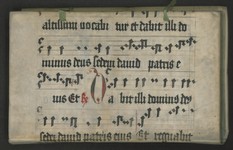 altissimi vocabi tur et dabit illi do
minus deus sedem david patris e
ius Et re Da bit illi dominus deus
sedem david patris eius Et regnabit